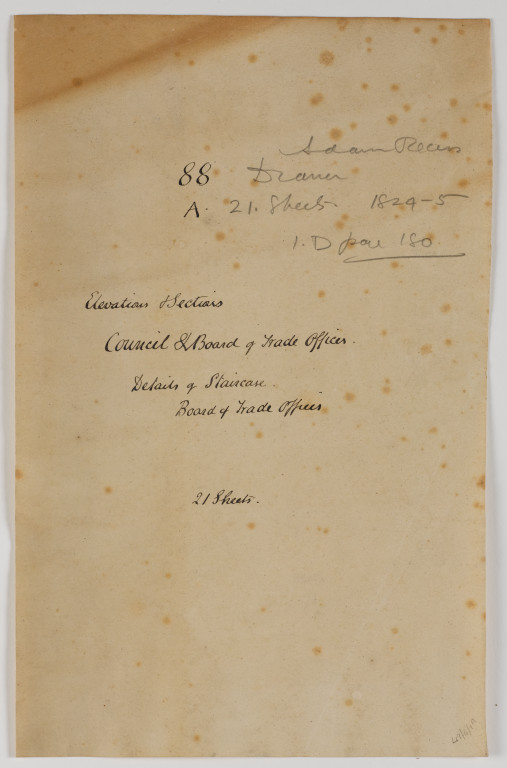 Adam Recess
88 Drawer
A. 21. Sheets. 1824-5
1. D 180.
Elevations & Sections
Council & Board of Trade Offices.
Details of Staircase.
Board of Trade Offices
21 Sheets.